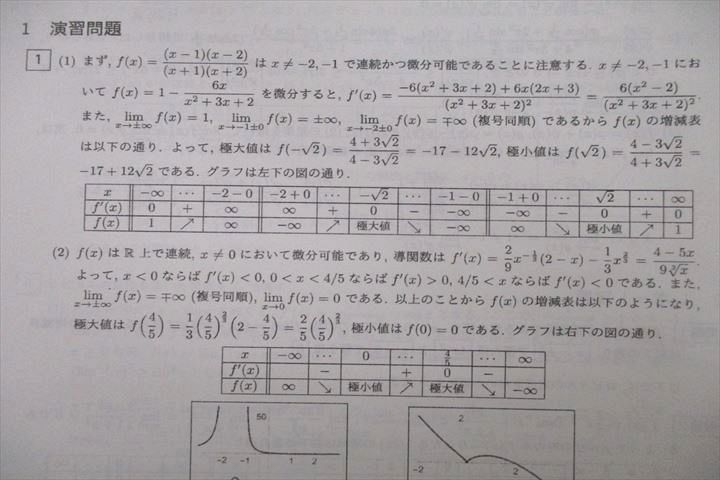 1 演習問題
1 (1) まず, f(x) = (x−1)(x−2)/(x+1)(x+2) は x ≠ −2, −1 で連続かつ微分可能であることに注意する. x ≠ −2, −1 にお
いて f(x) = 1 − 6x/(x²+3x+2) を微分すると, f′(x) = (−6(x²+3x+2)+6x(2x+3))/(x²+3x+2)² = 6(x²−2)/(x²+3x+2)².
また, lim_{x→±∞} f(x) = 1, lim_{x→−1±0} f(x) = ±∞, lim_{x→−2±0} f(x) = ∓∞ (複号同順) であるから f(x) の増減表
は以下の通り. よって, 極大値は f(−√2) = (4+3√2)/(4−3√2) = −17 − 12√2, 極小値は f(√2) = (4−3√2)/(4+3√2) =
−17 + 12√2 である. グラフは左下の図の通り.
x −∞ ⋯ −2−0 −2+0 ⋯ −√2 ⋯ −1−0 −1+0 ⋯ √2 ⋯ ∞
f′(x) 0 + ∞ ∞ + 0 − −∞ −∞ − 0 + 0
f(x) 1 ↗ ∞ −∞ ↗ 極大値 ↘ −∞ ∞ ↘ 極小値 ↗ 1
(2) f(x) は ℝ 上で連続, x ≠ 0 において微分可能であり, 導関数は f′(x) = 2/9 x^{−1/3}(2−x) − 1/3 x^{2/3} = (4−5x)/(9∛x).
よって, x < 0 ならば f′(x) < 0, 0 < x < 4/5 ならば f′(x) > 0, 4/5 < x ならば f′(x) < 0 である. また,
lim_{x→±∞} f(x) = ∓∞ (複号同順), lim_{x→0} f(x) = 0 である. 以上のことから f(x) の増減表は以下のようになり,
極大値は f(4/5) = 1/3 (4/5)^{2/3} (2 − 4/5) = 2/5 (4/5)^{2/3}, 極小値は f(0) = 0 である. グラフは右下の図の通り.
x −∞ ⋯ 0 ⋯ 4/5 ⋯ ∞
f′(x) − + 0 −
f(x) ∞ ↘ 極小値 ↗ 極大値 ↘ −∞
50
−2 −1 1 2
2
−2 2